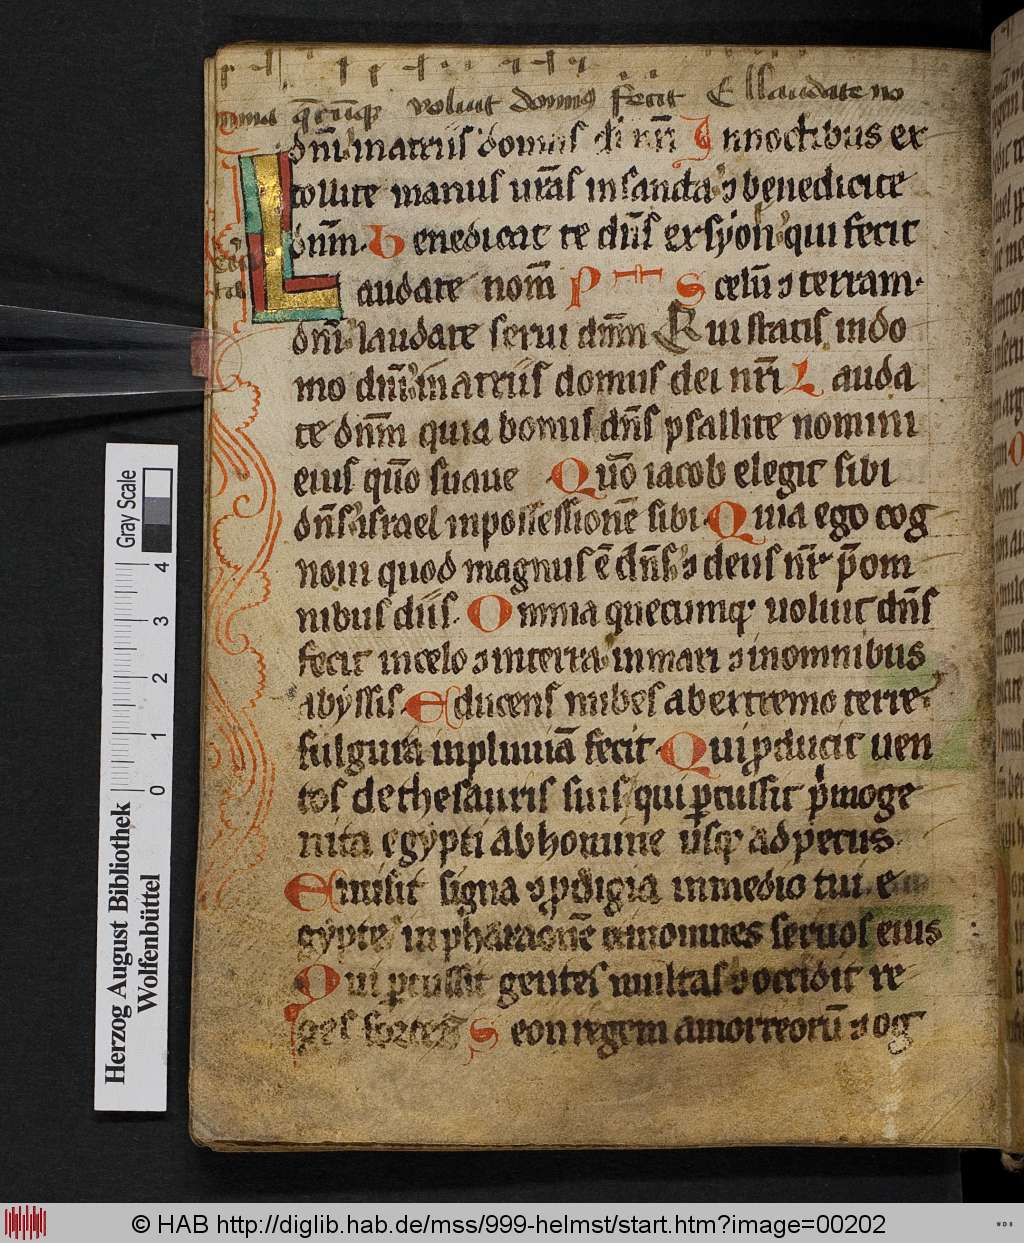 omnia q̄cūq̨ voluit dominus fecit E llaudate no
dn̄m in atriis domus di nr̄i I nnoctibus ex
tollite manus ur̄as insancta ⁊ benedicite
dn̄m. B enedicat te dn̄s exsyon qui fecit
L audate nom̄ P S celū ⁊ terram.
dn̄i laudate serui dn̄m Q ui statis indo
mo dn̄i in atriis domus dei nr̄i L auda
te dn̄m quia bonus dn̄s psallite nomini
eius qm̄o suaue Q m̄o iacob elegit sibi
dn̄s israel inpossessionē sibi Q uia ego cog
noui quod magnus ē dn̄s ⁊ deus nr̄ p̄ om
nibus diis. O mnia quecumq; uoluit dn̄s
fecit incelo ⁊ interra inmari ⁊ inomnibus
abyssis. E ducens nubes abextremo terre
fulgura inpluuiā fecit. Q ui ꝓducit uen
tos dethesauris suis qui ꝑcussit p̄moge
nita egypti abhomine usq; ad pecus
E misit signa ⁊ ꝓdigia inmedio tui e
gypte in pharaonē ⁊ inomnes seruos eius
Q ui ꝑcussit gentes multas ⁊ occidit re
ges fortes S eon regem amorreorū ⁊ og
Herzog August Bibliothek
Wolfenbüttel
Gray Scale
0 1 2 3 4
© HAB http://diglib.hab.de/mss/999-helmst/start.htm?image=00202
WDB